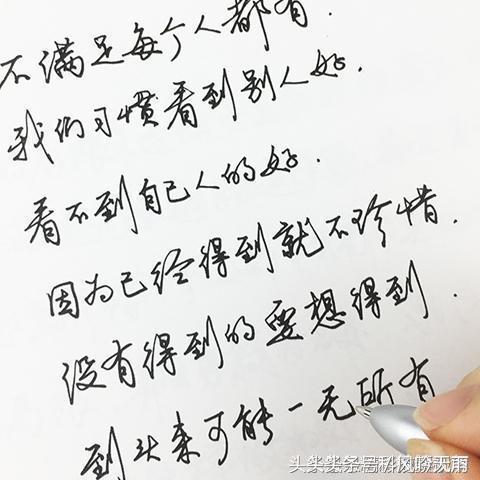 不满足每个人都有.
我们习惯看到别人好.
看不到自己人的好.
因为已经得到就不珍惜.
没有得到的要想得到.
到头来可能一无所有